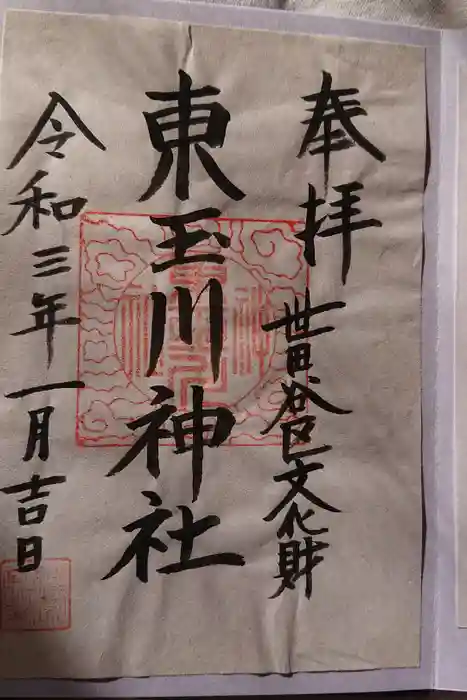 奉拝 世田谷区文化財
東玉川神社
令和三年一月吉日